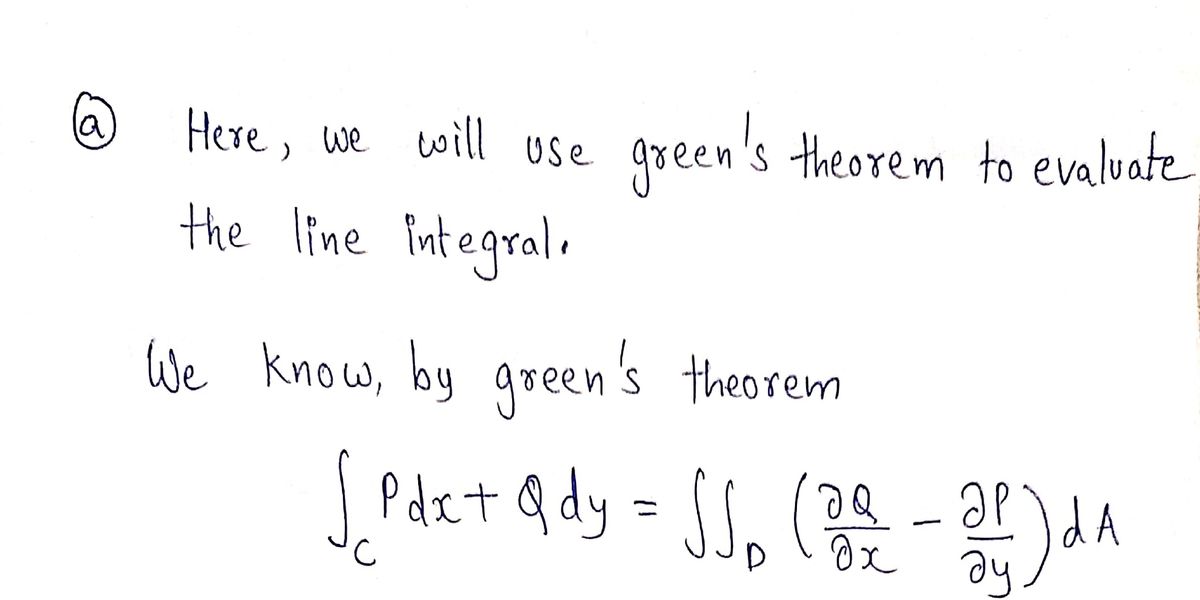 ⓐ Here, we will use green's theorem to evaluate
the line integral.
We know, by green's theorem
∫_C Pdx + Qdy = ∬_D (∂Q/∂x − ∂P/∂y) dA